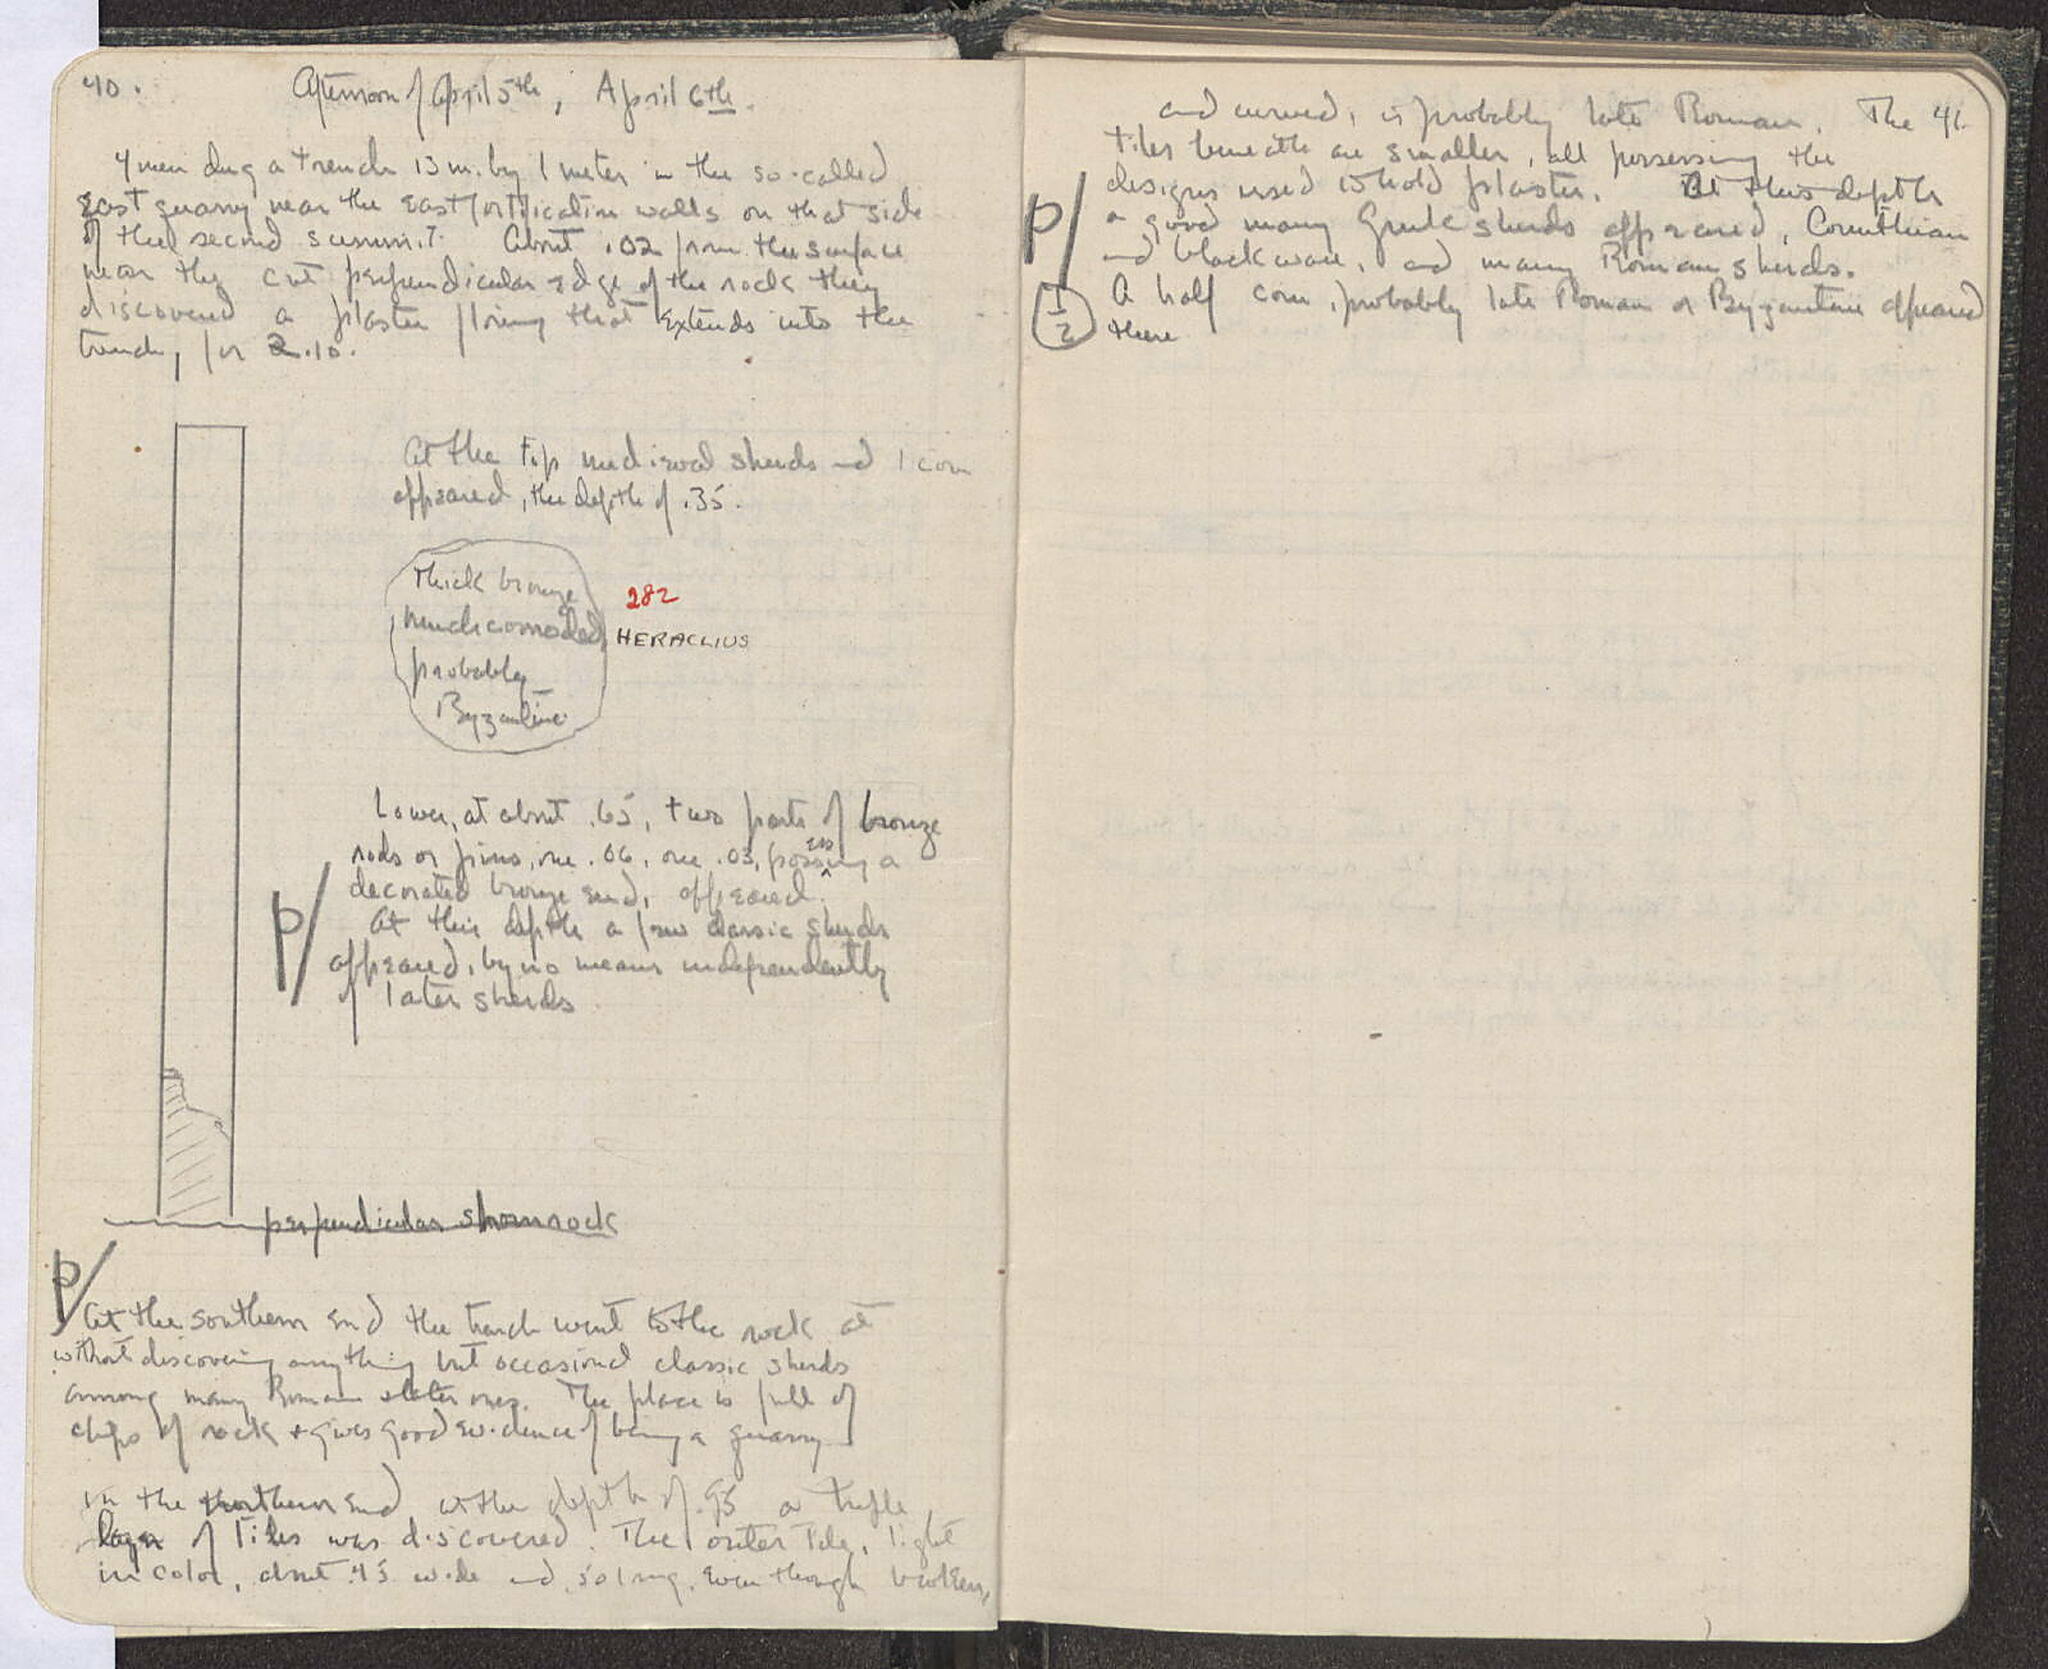 40.
Afternoon of April 5th, April 6th.
4 men dug a trench 13 m. by 1 meter in the so-called
East quarry near the East fortification walls on that side
of the second summit. About .02 from the surface
near the cut perpendicular edge of the rock they
discovered a plaster floring that extends into the
trench, for 2.10.
At the top medieval sherds and 1 coin
appeared, the depth of .35.
Thick bronze
much corroded
probably
Byzantine
282
HERACLIUS
Lower, at about .65, two parts of bronze
rods or pins, one .06, one .03, possessing a
decorated bronze end, appeared.
P/
At this depth a few classic sherds
appeared, by no means independently
of later sherds
perpendicular shorn rock
P/
At the southern end the trench went to the rock at
without discovering anything but occasional classic sherds
among many Roman + later ones. The place is full of
chips of rock + gives good evidence of being a quarry
in the northern end at the depth of .95 a triple
layer of Tiles was discovered. The outer Tile, light
in color, about .45 wide and .50 long, even though broken,
41.
and curved, is probably late Roman. The
tiles beneath are smaller, all possessing the
designs used to hold plaster. At this depth
P/
a good many Greek sherds appeared, Corinthian
and black ware, and many Roman sherds.
1/2
A half coin, probably late Roman or Byzantine appeared
there